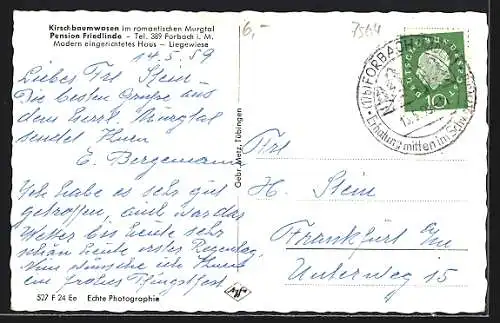 Kirschbaumwasen im romantischen Murgtal
Pension Friedlinde – Tel. 389 Forbach i. M.
Modern eingerichtetes Haus – Liegewiese
14.5.59
Liebes Frl Stein –
Die besten Grüße aus
dem Murgtal
sendet Ihnen
E. Bergemann
Ich habe es sehr gut
getroffen, auch war das
Wetter bis heute sehr
schön heute erster Regentag.
Nun wünsche ich Ihnen
ein frohes Pfingstfest.
527 F 24 Eo Echte Photographie
Gebr. Metz, Tübingen
6,–
7564
(17b) FORBACH
Erholung mitten im Schw
DEUTSCHE BUNDESPOST
10
Frl
H. Stein
Frankfurt a/m
Unterweg 15